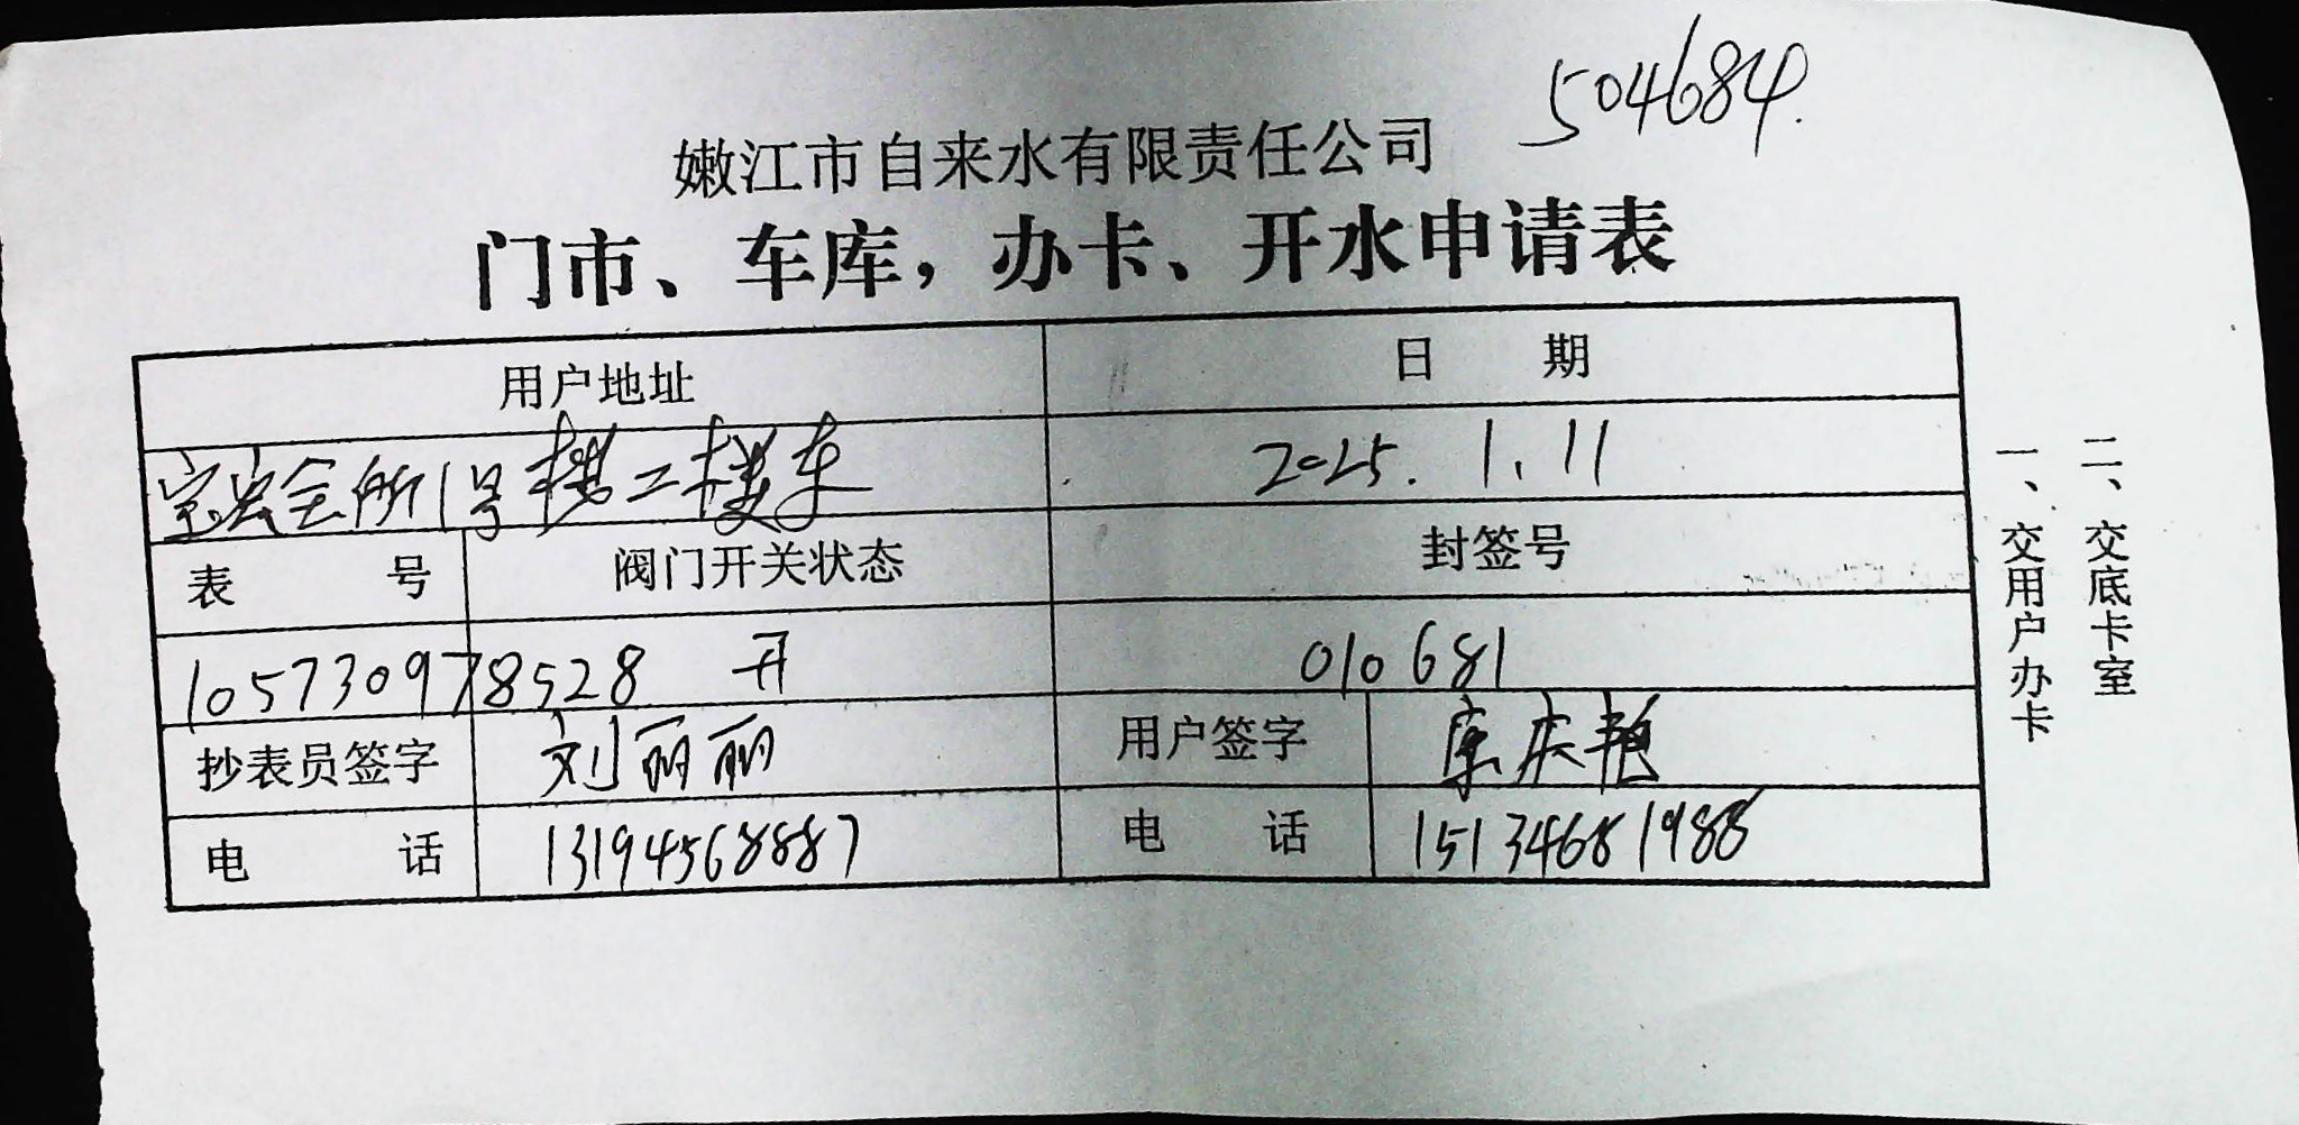 504684.
嫩江市自来水有限责任公司
门市、车库，办卡、开水申请表
用户地址 日期
宝宏会所1号楼二楼车 2025.1.11
表号 阀门开关状态 封签号
105730978528 开 010681
抄表员签字 刘丽丽 用户签字 庆艳
电话 13194568887 电话 15134681988
一、交用户办卡
二、交底卡室